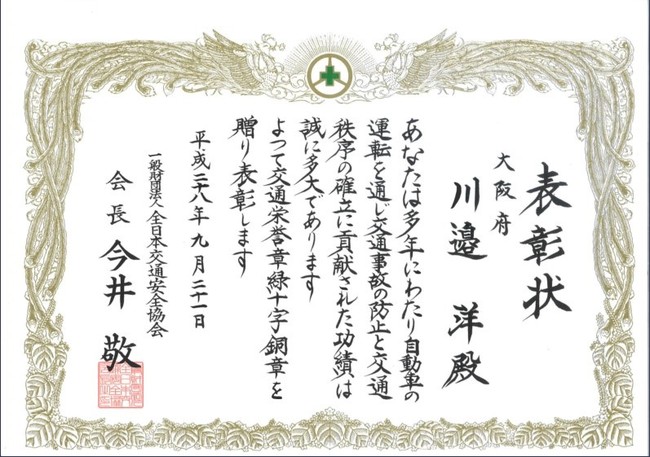 表彰状
大阪府
川邉 洋殿
あなたは多年にわたり自動車の
運転を通じ交通事故の防止と交通
秩序の確立に貢献された功績は
誠に多大であります
よつて交通栄誉章緑十字銅章を
贈り表彰します
平成二十八年九月二十一日
一般財団法人全日本交通安全協会
会長 今井 敬